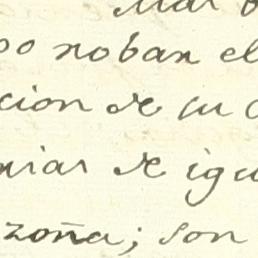 po no ban el
cion de su
nias de igu
zoña; son